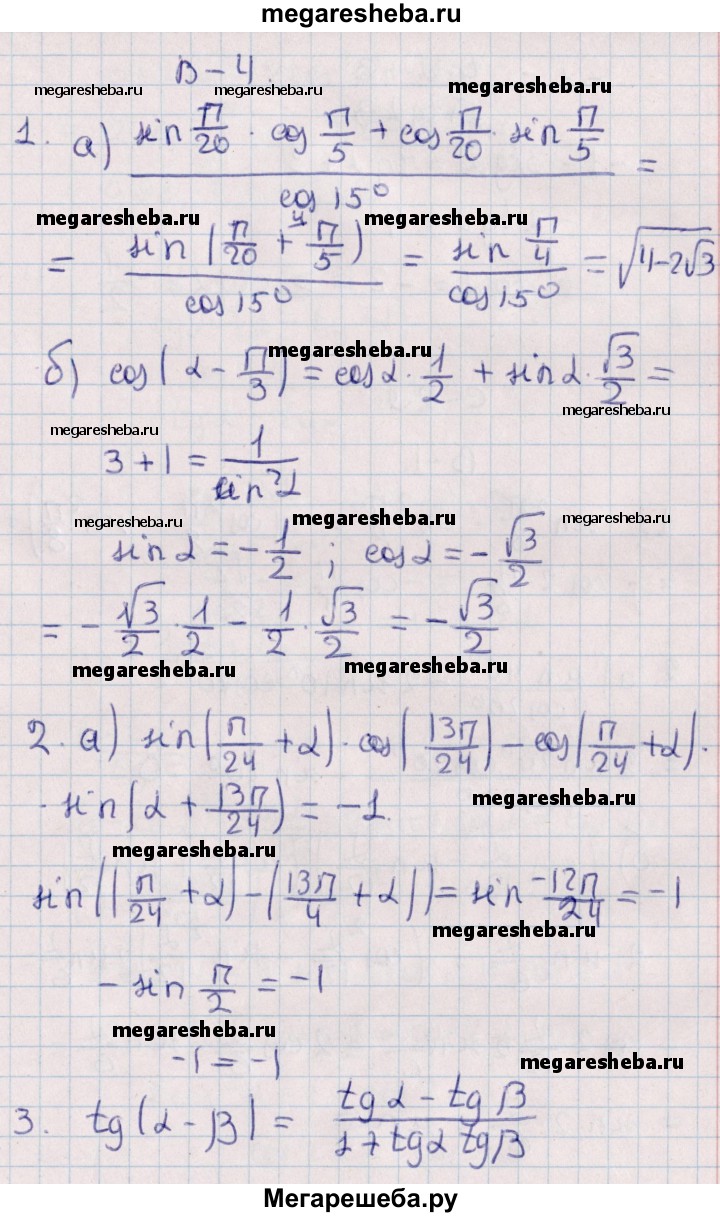 megaresheba.ru
В – 4.
megaresheba.ru megaresheba.ru megaresheba.ru
1. а) (sin π/20 · cos π/5 + cos π/20 · sin π/5) / cos 15° =
megaresheba.ru megaresheba.ru
= sin(π/20 + ⁴π/5) / cos 15° = sin π/4 / cos 15° = √(4-2√3)
megaresheba.ru
б) cos(α - π/3) = cos α · 1/2 + sin α · √3/2 =
megaresheba.ru
megaresheba.ru
3 + 1 = 1/sin²α
megaresheba.ru megaresheba.ru megaresheba.ru
sin α = - 1/2 ; cos α = - √3/2
= - √3/2 · 1/2 - 1/2 · √3/2 = - √3/2
megaresheba.ru megaresheba.ru
2. а) sin(π/24 + α) · cos(13π/24) - cos(π/24 + α) ·
· sin(α + 13π/24) = -1.
megaresheba.ru
megaresheba.ru
sin((π/24 + α) - (13π/4 + α)) = sin -12π/24 = -1
megaresheba.ru
- sin π/2 = -1
megaresheba.ru
-1 = -1
megaresheba.ru
3. tg(α - β) = (tg α - tg β) / (1 + tg α tg β)
Мегарешеба.ру